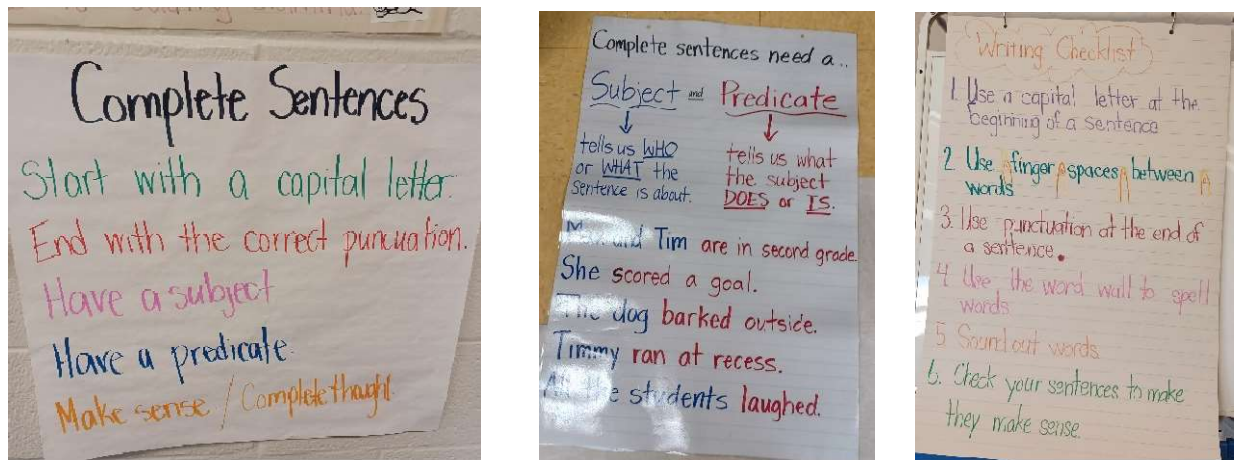 Complete Sentences
Start with a capital letter.
End with the correct puncuation.
Have a subject
Have a predicate.
Make sense / Complete thought.
Complete sentences need a..
Subject and Predicate
tells us WHO
or WHAT the
sentence is about.
tells us what
the subject
DOES or IS.
and Tim are in second grade.
She scored a goal.
The dog barked outside.
Timmy ran at recess.
All the students laughed.
Writing Checklist
1. Use a capital letter at the
beginning of a sentence
2. Use finger spaces between
words
3. Use punctuation at the end of
a sentence.
4. Use the word wall to spell
words
5. Sound out words
6. Check your sentences to make
they make sense.